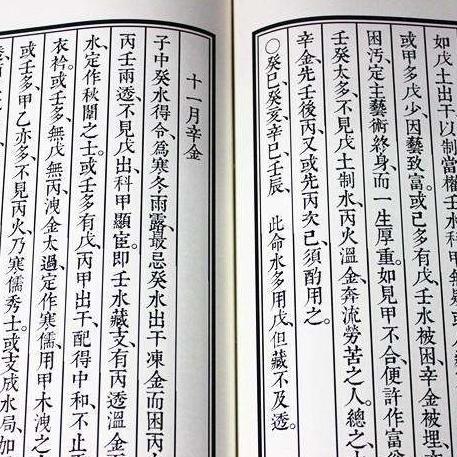 如戊土出干以制當權壬水科甲無疑
或甲多戊少、因藝致富、或己多有戊、壬水被困、辛金被埋、
困污、定主藝術終身、而一生厚重。如見甲不合、便許作富
壬癸太多、不見戊土制水、丙火溫金、奔流勞苦之人。總之、
辛金、先壬後丙、又或先丙次己、須酌用之。
○癸巳、癸亥、辛巳、壬辰、此命水多用戊、但藏不及透。
十一月辛金
子中癸水得令、爲寒冬雨露、最忌癸水出干凍金、而困丙
丙壬兩透、不見戊出、科甲顯臣。即壬水藏支、有丙透溫金
水、定作秋闈之士。或壬多有戊、丙甲出干、配得中和、不止
衣衿。或壬多、無戊無丙、洩金太過、定作寒儒、用甲木洩之
或壬多、甲乙亦多、不見丙火、乃寒儒秀士。或支成水局、如